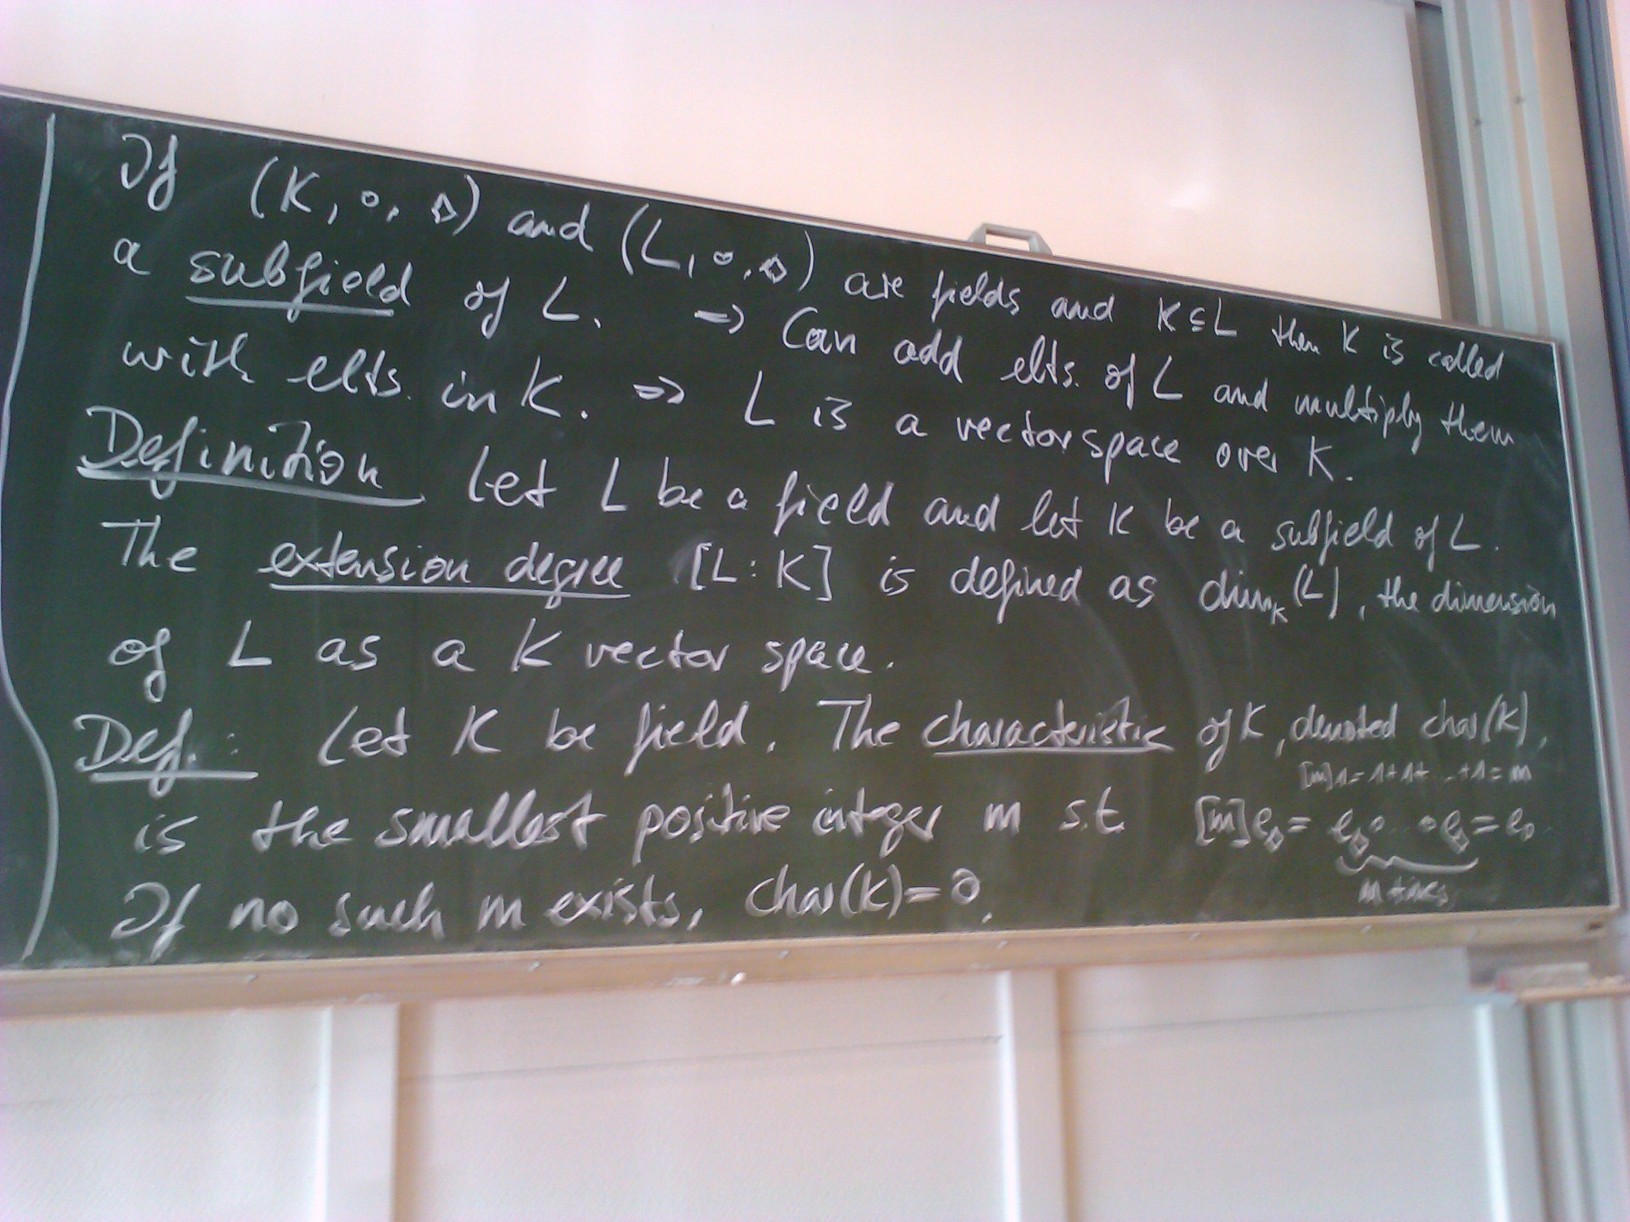 If (K, ∘, ◇) and (L, ∘, ◇) are fields and K ⊆ L then K is called
a subfield of L. ⇒ Can add elts. of L and multiply them
with elts. in K. ⇒ L is a vector space over K.
Definition Let L be a field and let K be a subfield of L.
The extension degree [L : K] is defined as dim_K (L), the dimension
of L as a K vector space.
Def.: Let K be field. The characteristic of K, denoted char(K),
[m]1 = 1+1+ ... +1 = m
is the smallest positive integer m s.t. [m]e_◇ = e_◇∘ ... ∘e_◇ = e_∘
m times
If no such m exists, char(K) = 0.